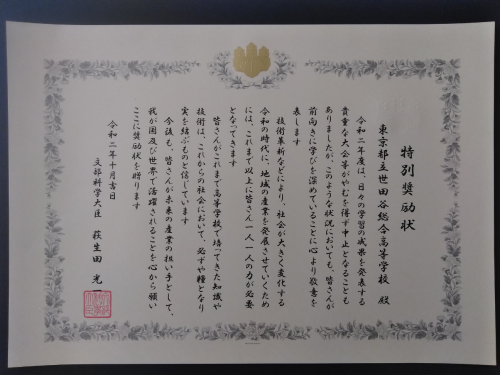 特別奨励状
東京都立世田谷総合高等学校 殿
令和二年度は、日々の学習の成果を発表する
貴重な大会等がやむを得ず中止となることも
ありましたが、このような状況においても、皆さんが
前向きに学びを深めていることに心より敬意を
表します
技術革新などにより、社会が大きく変化する
令和の時代に、地域の産業を発展させていくため
には、これまで以上に皆さん一人一人の力が必要
となってきます
皆さんがこれまで高等学校で培ってきた知識や
技術は、これからの社会において、必ずや糧となり
実を結ぶものと信じています
今後も、皆さんが未来の産業の担い手として、
我が国及び世界で活躍されることを心から願い
ここに奨励状を贈ります
令和二年十月吉日
文部科学大臣 萩生田 光一